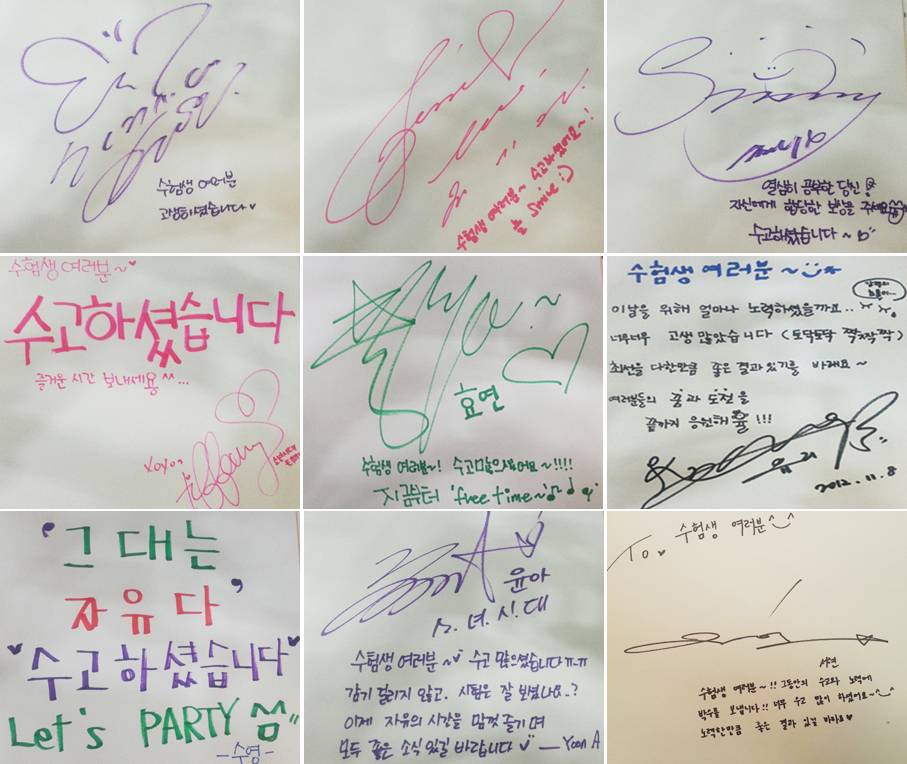 수험생 여러분
고생하셨습니다♥
수험생 여러분~ 수고하셨어요~!
늘 smile :)
Sunny
열심히 공부한 당신!
자신에게 합당한 보상을 주세요^^
수고하셨습니다~
수험생 여러분~♥
수고하셨습니다
즐거운 시간 보내세용 ^^...
xoxo,
tiffany
Hyo~
효연
수험생 여러분~! 수고많으셨어요~!!!!
지금부터 'free time~'
수험생 여러분~
이날을 위해 얼마나 노력하였을까요..
너무너무 고생 많았습니다 (토닥토닥 짝짝짝)
최선을 다한만큼 좋은 결과있기를 바래요~
여러분들의 꿈과 도전을
끝까지 응원해율!!!
유리
2012.11.8
'그대는
자유다'
"수고하셨습니다"
Let's PARTY
-수영-
윤아
소.녀.시.대
수험생 여러분~ 수고 많으셨습니다ㅠㅠ
감기 걸리지 않고. 시험은 잘 보셨나요..?
이제 자유의 시간을 맘껏 즐기며
모두 좋은 소식 있길 바랍니다 — Yoon A
To. 수험생 여러분^_^
서현
수험생 여러분~!! 그동안의 수고와 노력에
박수를 보냅니다!! 너무 수고 많이 하셨어요~^_^
노력한만큼 좋은 결과 있길 바라요♥